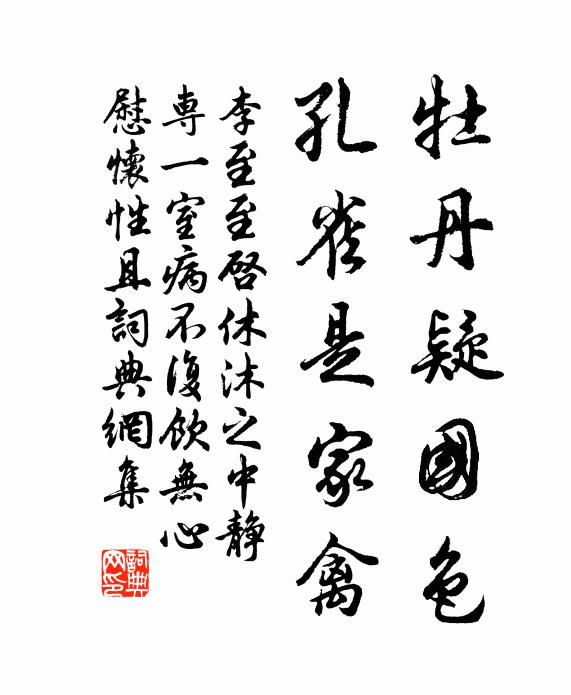 牡丹疑國色
孔雀是家禽
李至至啓休沐之中静
専一室病不復飲無心
慰懷性且詞典網集
詞典
网印